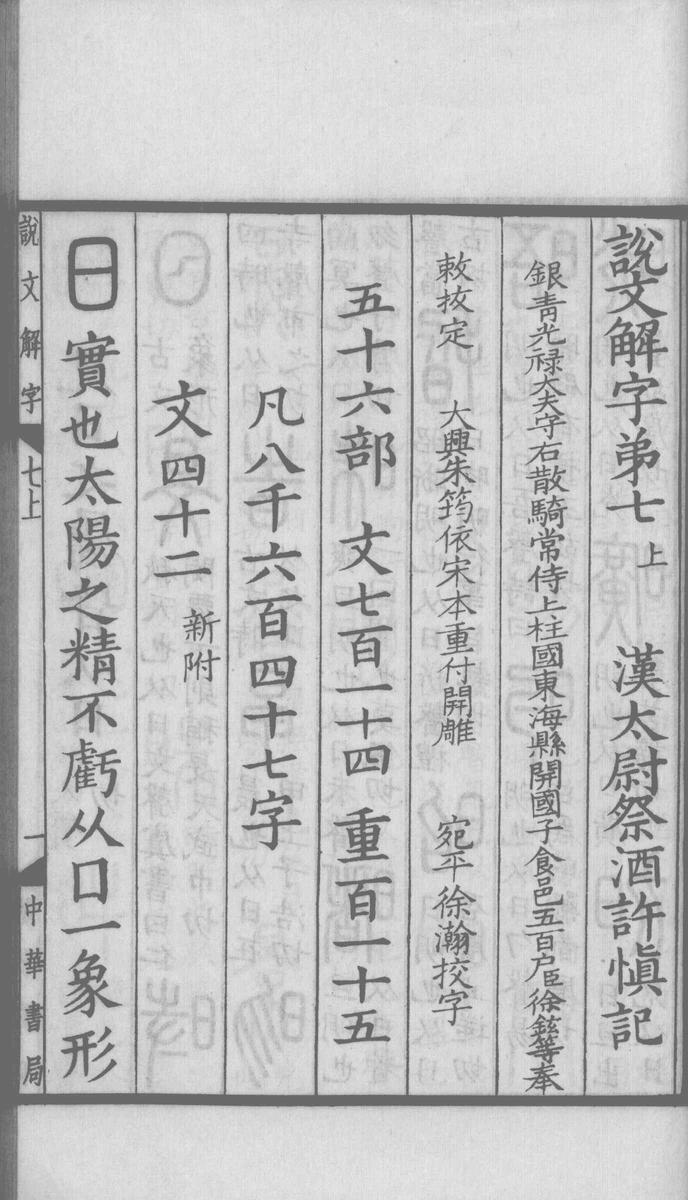 說文解字弟七上 漢太尉祭酒許愼記
銀青光禄大夫守右散騎常侍上柱國東海縣開國子食邑五百户臣徐鉉等奉
敕挍定 大興朱筠依宋本重付開雕 宛平徐瀚挍字
五十六部 文七百一十四 重百一十五
凡八千六百四十七字
文四十二 新附
日 實也太陽之精不虧从囗一象形
說文解字 七上 一 中華書局